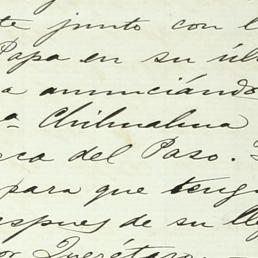 te junto con l
Papa en su úl
a anunciándo
a Chihuahua
ca del Paso.
para que teng
espues de su ll
or Querétaro